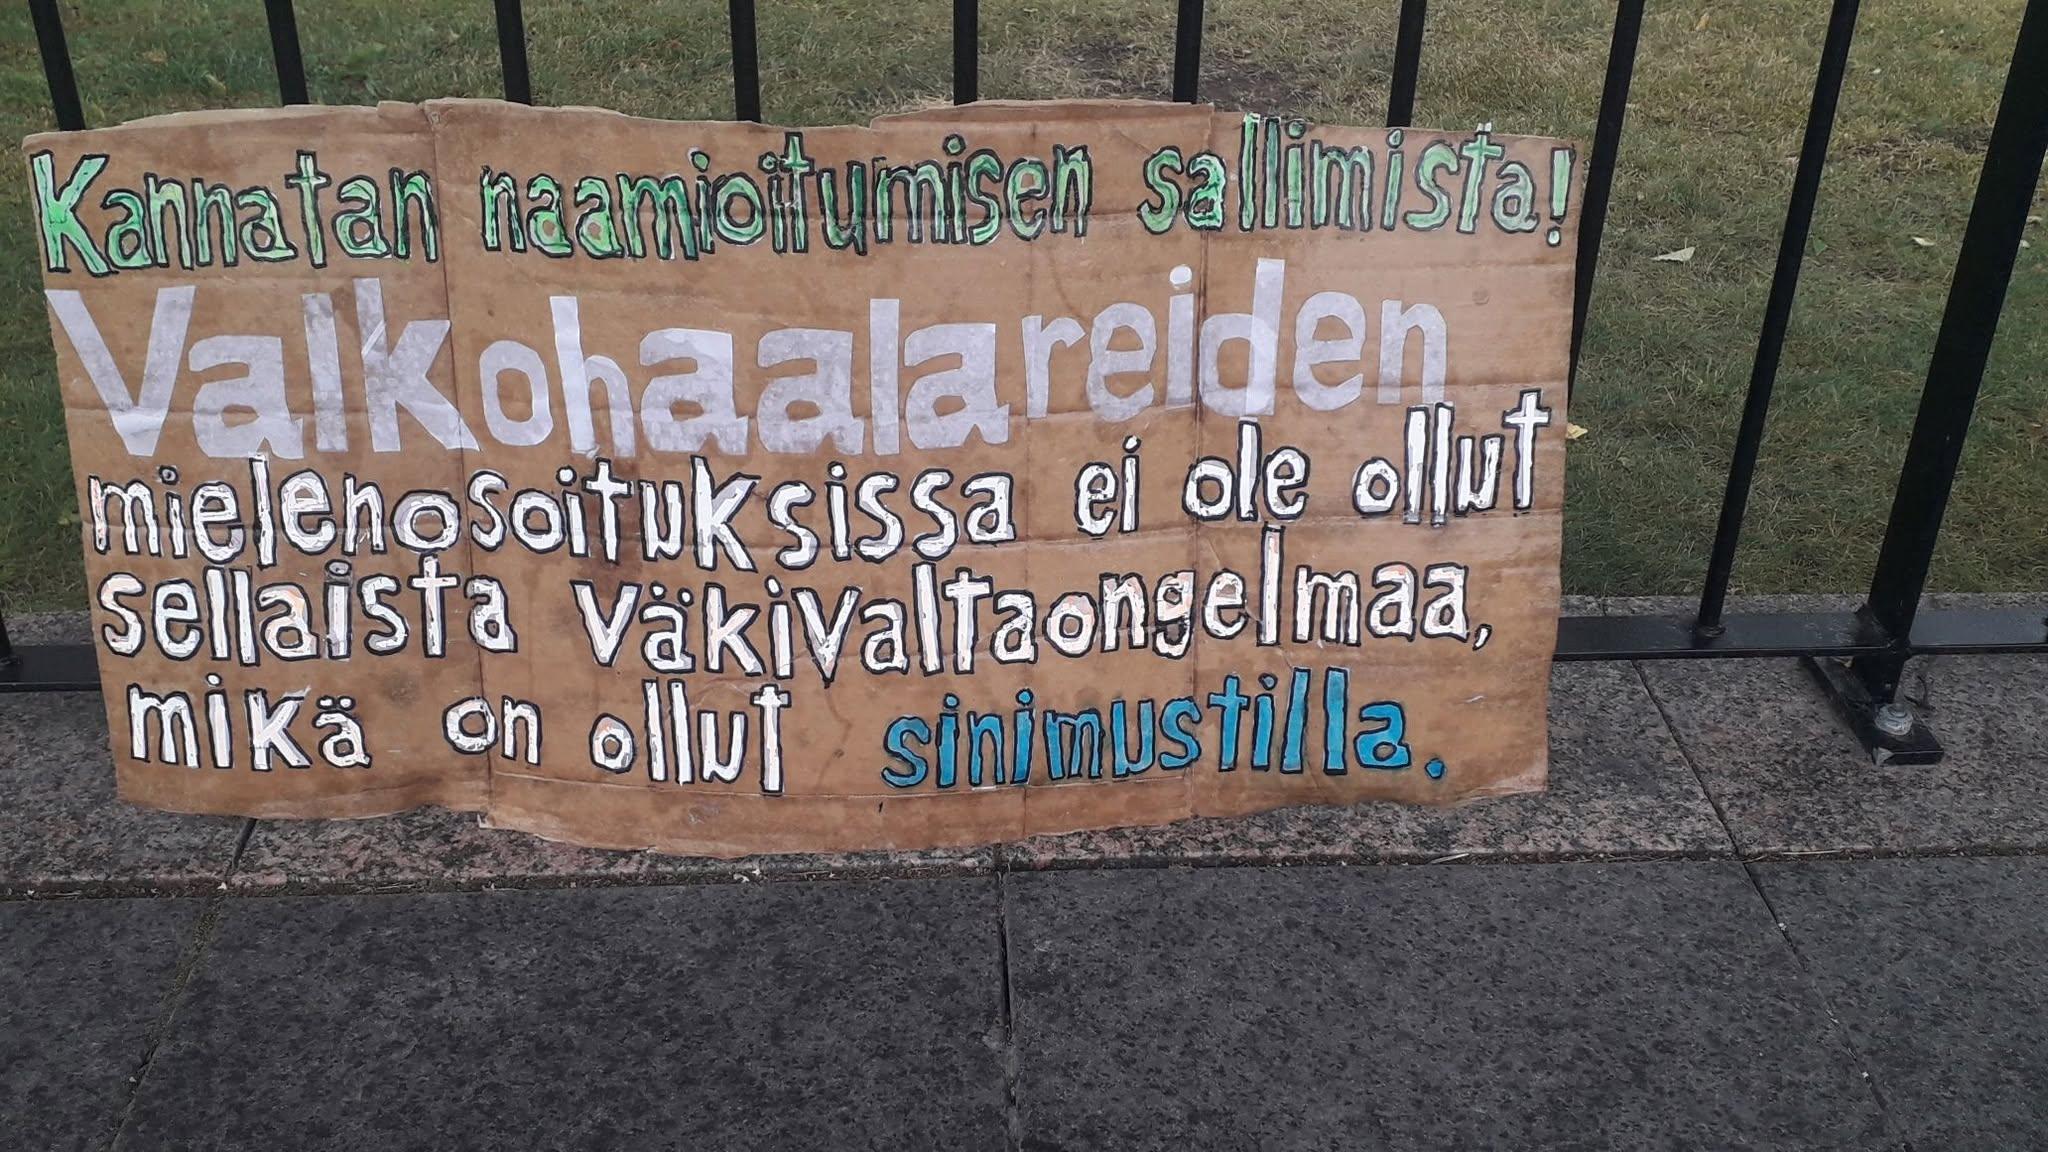 Kannatan naamioitumisen sallimista!
Valkohaalareiden
mielenosoituksissa ei ole ollut
sellaista väkivaltaongelmaa,
mikä on ollut sinimustilla.